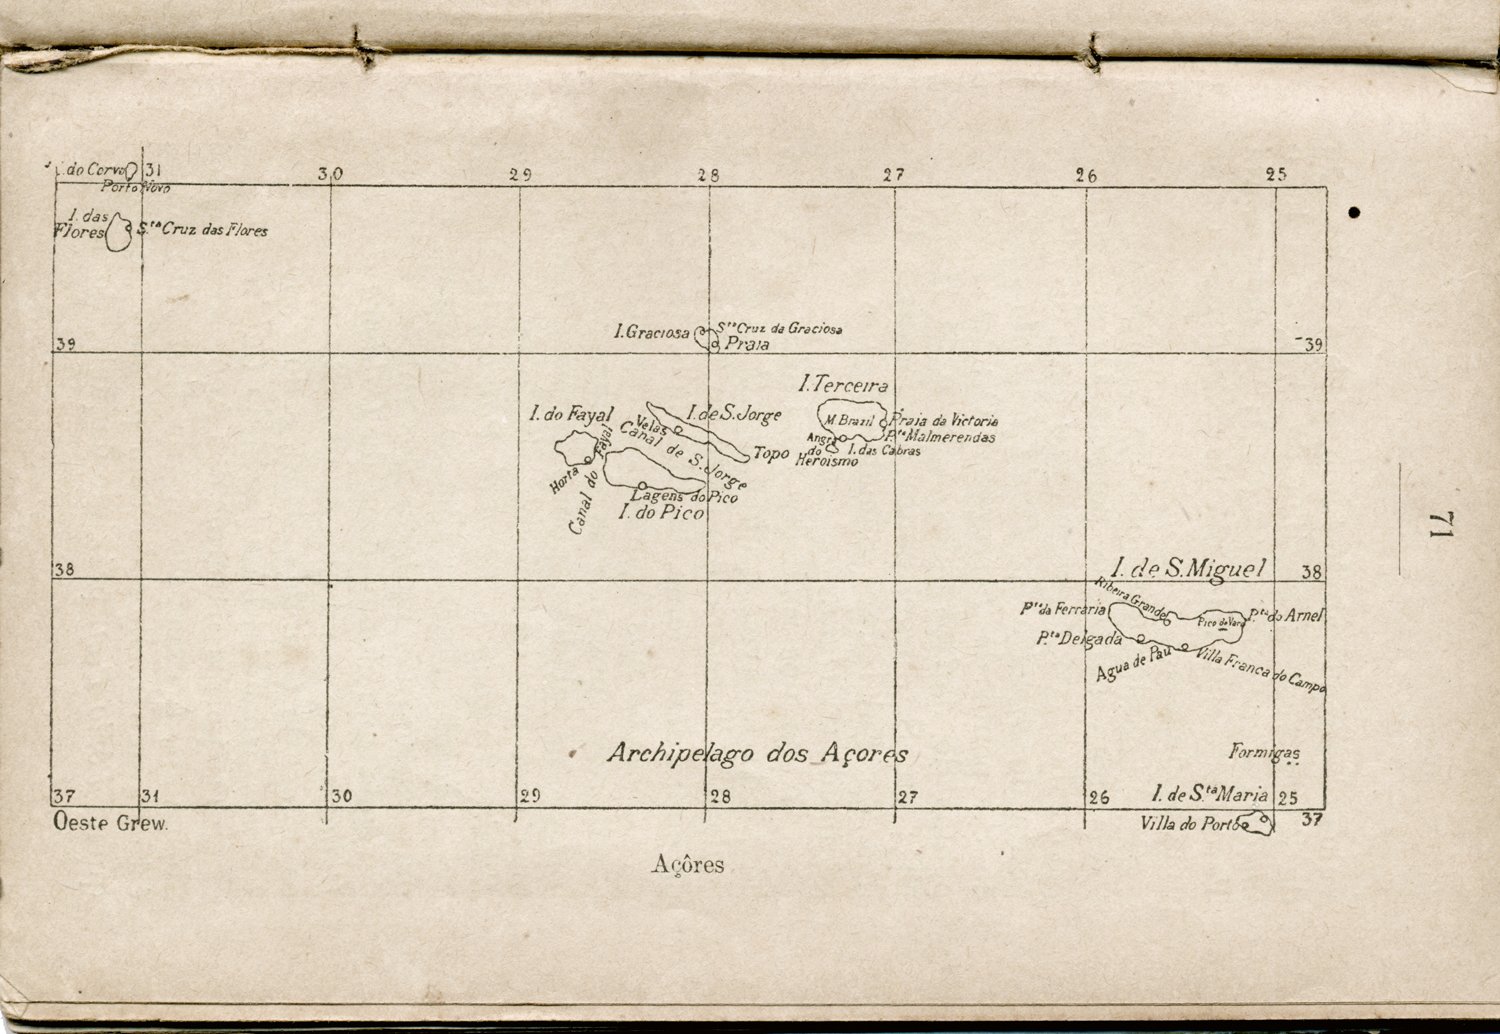 I. do Corvo
Porto Novo
31
30
29
28
27
26
25
I. das
Flores
S.ta Cruz das Flores
I. Graciosa
S.ta Cruz da Graciosa
Praia
39
39
I. Terceira
M. Brazil
Praia da Victoria
P.ta Malmerendas
Angra
do
Heroismo
I. das Cabras
I. do Fayal
Horta
Canal do Fayal
I. de S. Jorge
Velas
Canal de S. Jorge
Topo
Lagens do Pico
I. do Pico
71
38
I. de S. Miguel
38
Ribeira Grande
P.ta da Ferraria
Pico da Vara
P.ta do Arnel
P.ta Delgada
Agua de Pau
Villa Franca do Campo
Archipelago dos Açores
Formigas
I. de S.ta Maria
Villa do Porto
37
31
30
29
28
27
26
25
37
Oeste Grew.
Açôres